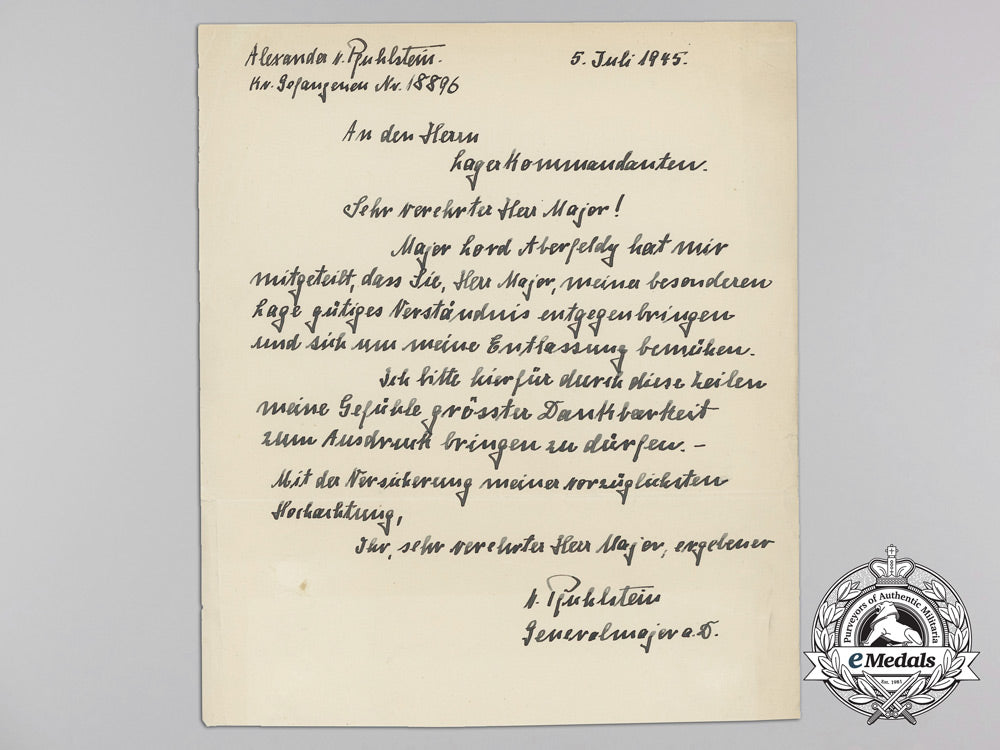 Alexander v. Pfuhlstein.
5. Juli 1945.
Kr. Gefangenen Nr. 18896
An den Herrn
Lagerkommandanten.
Sehr verehrter Herr Major!
Major Lord Aberfeldy hat mir
mitgeteilt, dass Sie, Herr Major, meiner besonderen
Lage gütiges Verständnis entgegenbringen
und sich um meine Entlassung bemühen.
Ich bitte hierfür durch diese Zeilen
meine Gefühle grösster Dankbarkeit
zum Ausdruck bringen zu dürfen. –
Mit der Versicherung meiner vorzüglichsten
Hochachtung,
Ihr, sehr verehrter Herr Major, ergebener
v. Pfuhlstein
Generalmajor a. D.
Purveyors of Authentic Militaria
eMedals
Est. 1981